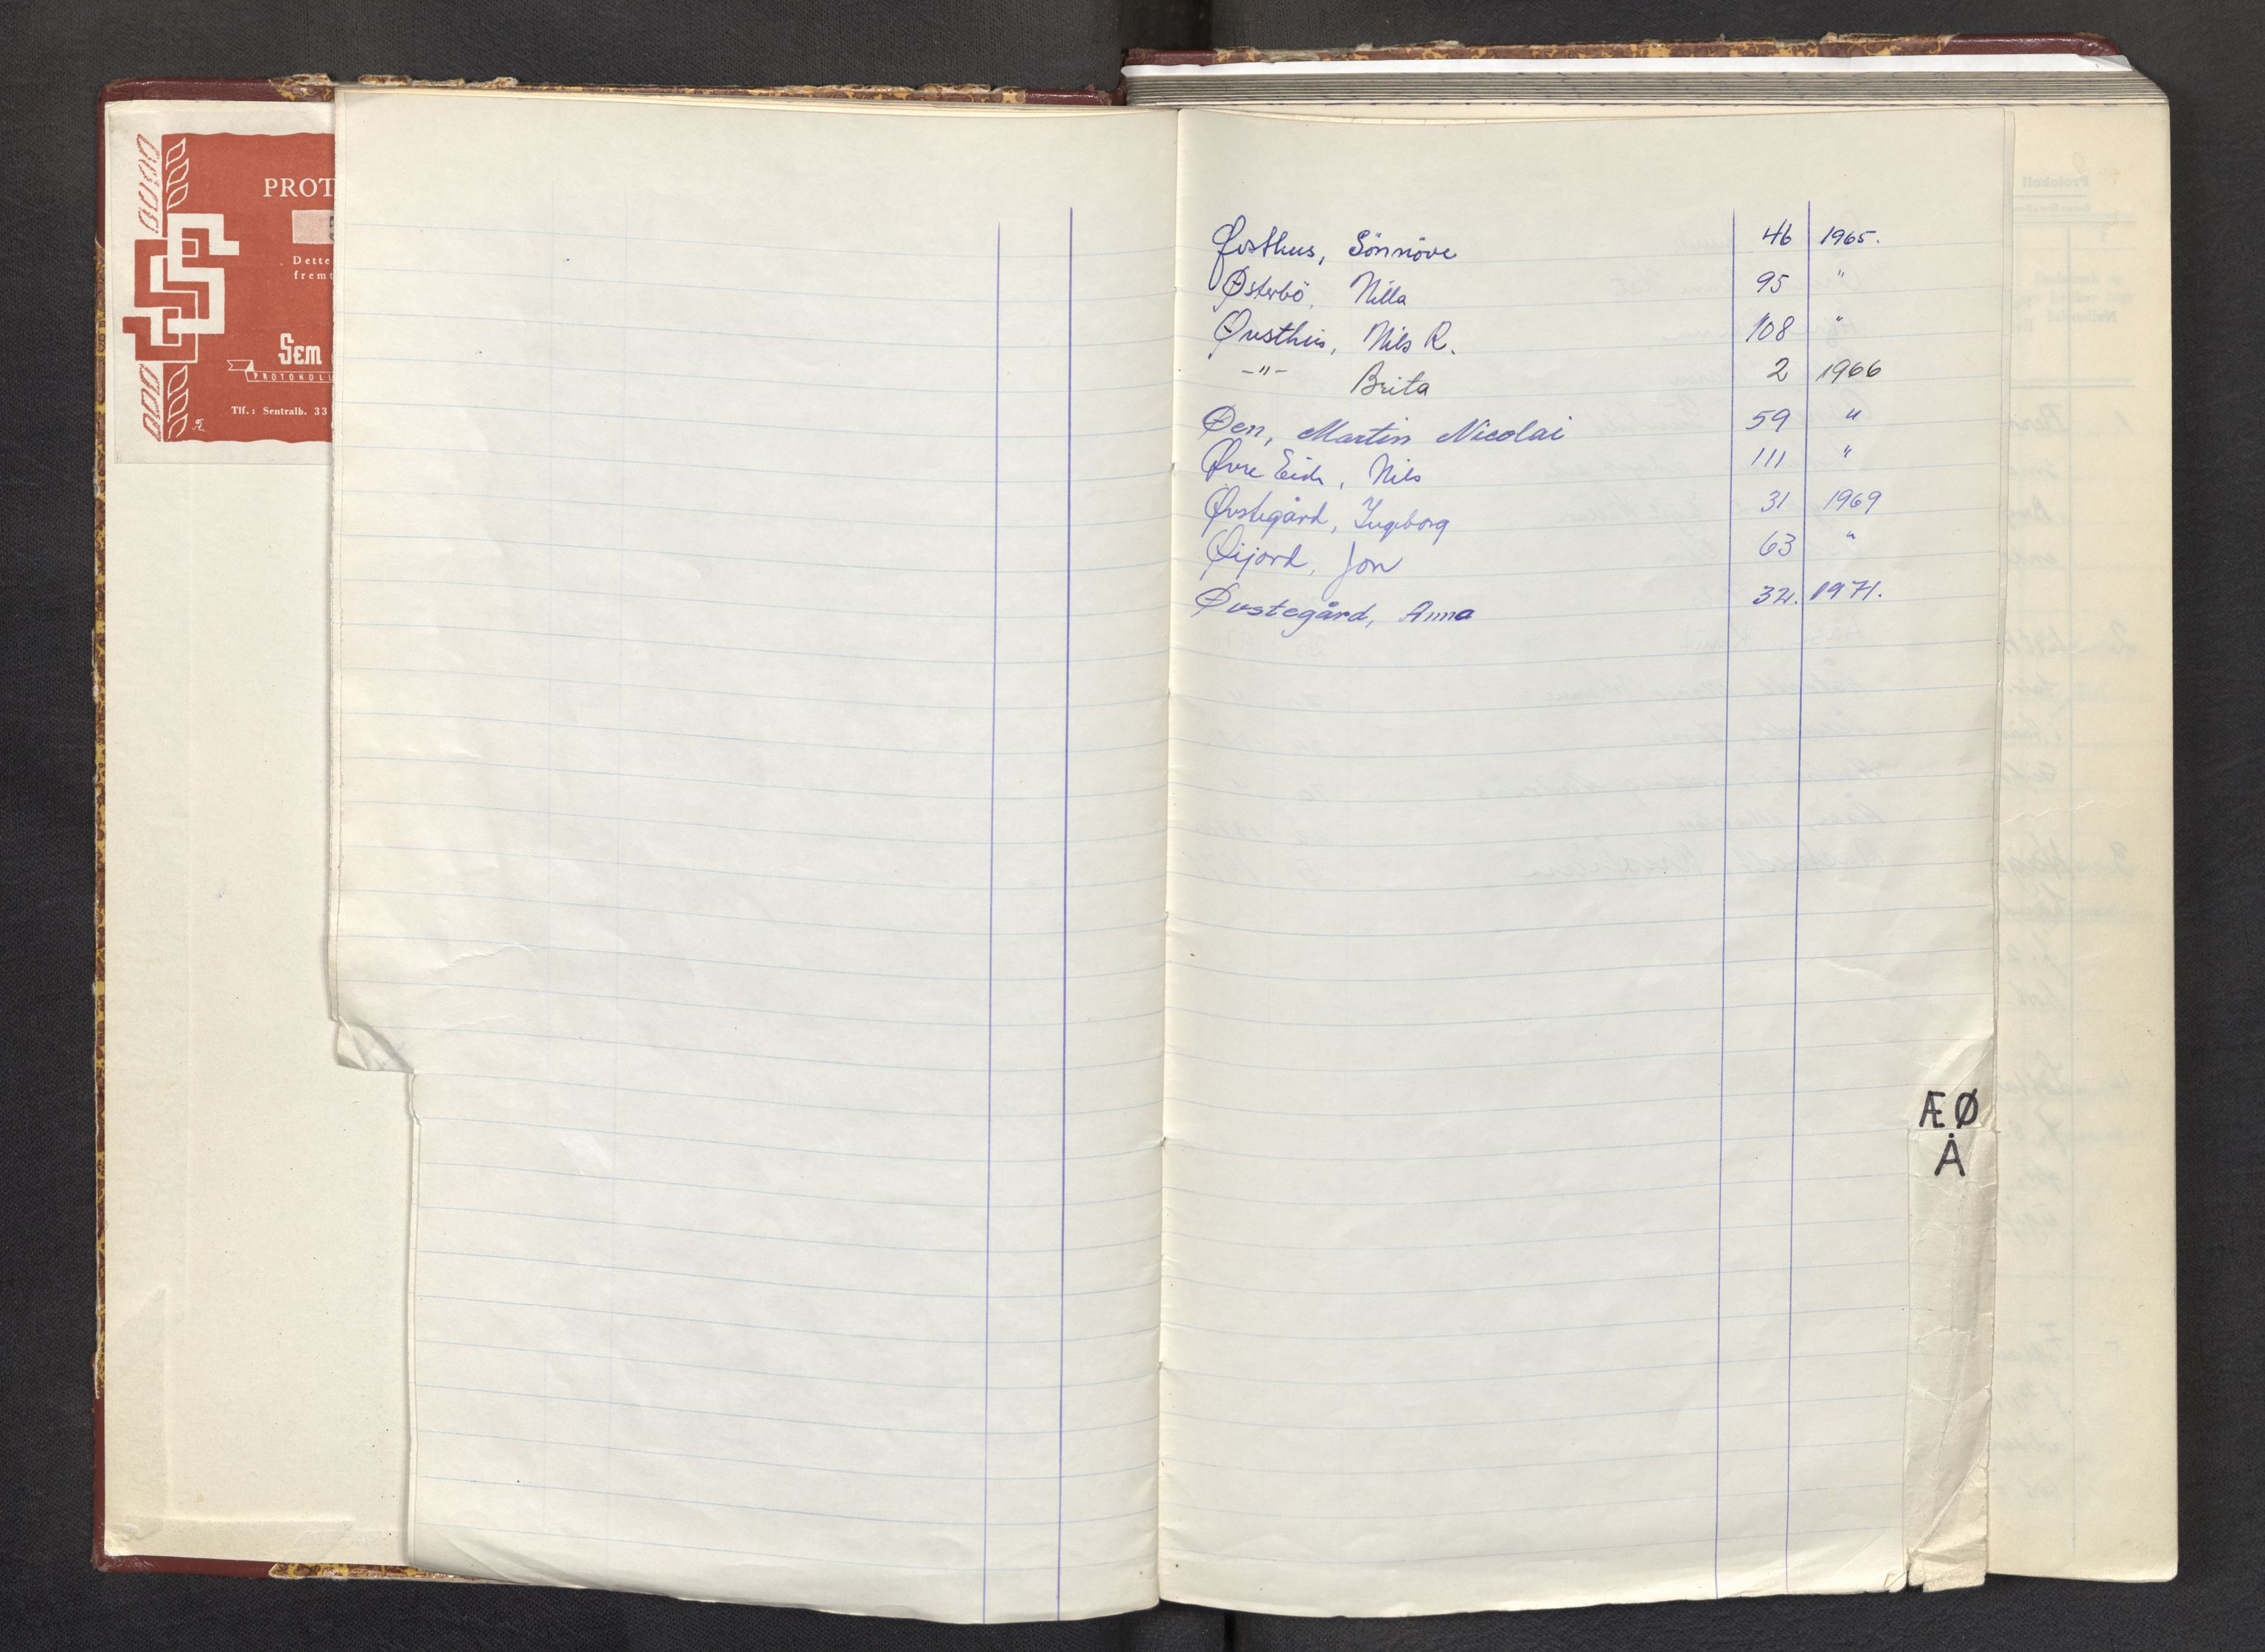 PROT
Dette
fremt
Sem
PROTOKOLL
Tlf.: Sentralb. 33
Øvsthus, Sönnöve 46 1965.
Østerbö, Nilla 95 "
Øvsthus, Nils R. 108 "
-"- Brita 2 1966
Øen, Martin Nicolai 59 "
Øvre Eide, Nils 111 "
Øvstegård, Ingeborg 31 1969
Øijord, Jon 63 "
Øvstegård, Anna 32. 1971.
ÆØ
Å
Protokoll